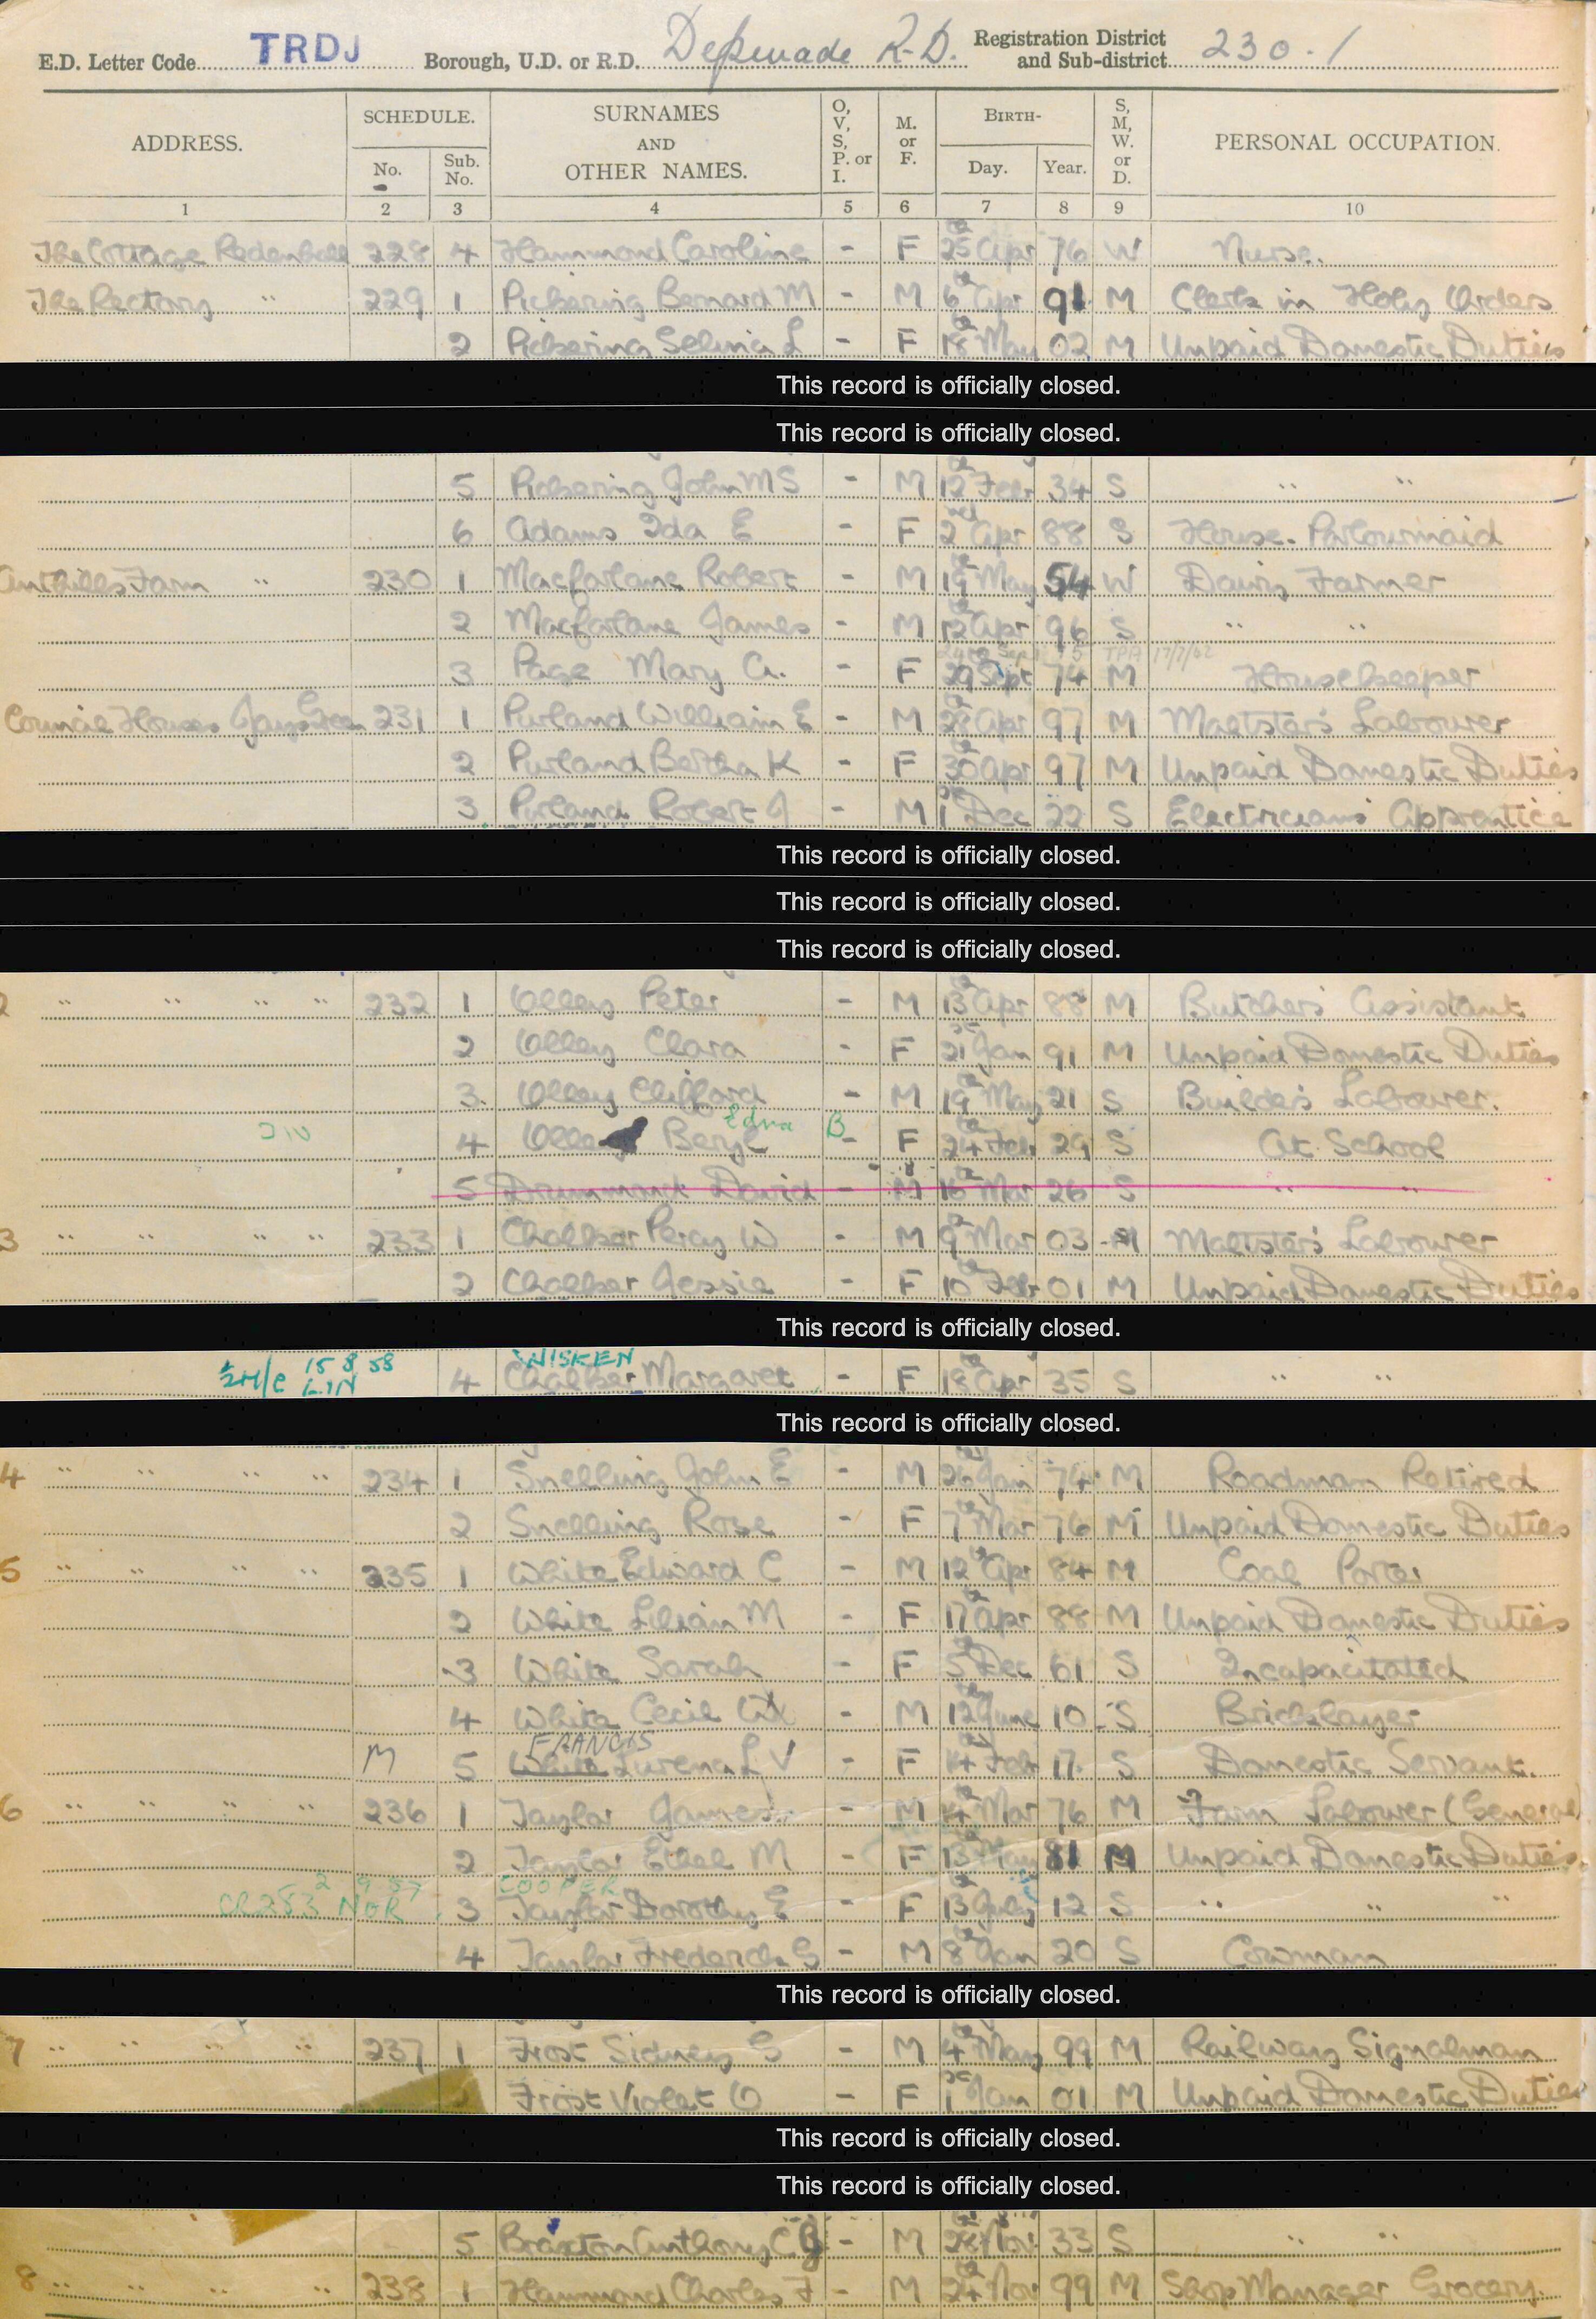 E.D. Letter Code TRDJ Borough, U.D. or R.D. Depwade R.D. Registration District and Sub-district 230-1
ADDRESS. SCHEDULE. No. Sub. No. SURNAMES AND OTHER NAMES. O, V, S, P. or I. M. or F. BIRTH- Day. Year. S, M, W. or D. PERSONAL OCCUPATION.
1 2 3 4 5 6 7 8 9 10
The Cottage Redenhall 228 4 Hammond Caroline - F 25th Apr 76 W Nurse.
The Rectory " 229 1 Pickering Bernard M - M 6th Apr 91 M Clerk in Holy Orders
2 Pickering Selina L - F 18th May 02 M Unpaid Domestic Duties
This record is officially closed.
This record is officially closed.
5 Pickering John M S - M 12th Febr 34 S " "
6 Adams Ida E - F 2nd Apr 88 S House. Parlourmaid
Anthills Farm " 230 1 Macfarlane Robert - M 19th May 54 W Dairy Farmer
2 Macfarlane James - M 12th Apr 96 S " "
TPA 17/7/42
3 Page Mary A. - F 29 Sept 74 M Housekeeper
Council Houses Jays Green 231 1 Purland William E - M 28th Apr 97 M Maltster's Labourer
2 Purland Bertha K - F 30th Apr 97 M Unpaid Domestic Duties
3 Purland Robert J - M 1st Dec 22 S Electricians Apprentice
This record is officially closed.
This record is officially closed.
This record is officially closed.
2 " " " " 232 1 Olley Peter - M 13th Apr 88 M Butchers Assistant
2 Olley Clara - F 21st Jan 91 M Unpaid Domestic Duties
3. Olley Clifford - M 19th May 21 S Builders Labourer.
Edna B
4 Olle Beryl - F 24th Feb 29 S At School
5 Drummont David - M 16th Mar 26 S " "
3 " " " " 233 1 Chalker Percy W - M 9th Mar 03 M Maltster's Labourer
2 Chalker Jessie - F 10th Feb 01 M Unpaid Domestic Duties
This record is officially closed.
15 8 58 WISKEN
LIN 4 Chalker Margaret - F 18th Apr 35 S " "
This record is officially closed.
4 " " " " 234 1 Snelling John E - M 26th Jan 74 M Roadman Retired
2 Snelling Rose - F 7th Mar 76 M Unpaid Domestic Duties
5 " " " " 235 1 White Edward C - M 12th Apr 84 M Coal Porter
2 White Lilian M - F 17th Apr 88 M Unpaid Domestic Duties
3 White Sarah - F 5th Dec 61 S Incapacitated
4 White Cecil W - M 12th June 10 S Bricklayer
FRANCIS
M 5 White Lurena L V - F 14th Feb 17 S Domestic Servant.
6 " " " " 236 1 Taylor James - M 14th Mar 76 M Farm Labourer (General)
2 Taylor Ethel M - F 13th 81 M Unpaid Domestic Duties
2 9 57 COOPER
CR283 NOR 3 Taylor Dorothy E - F 13th July 12 S " "
4 Taylor Frederick G - M 8th Jan 20 S Cowman
This record is officially closed.
7 " " " " 237 1 Frost Sidney G - M 4th May 99 M Railway Signalman
Frost Violet O - F 1st Jan 01 M Unpaid Domestic Duties
This record is officially closed.
This record is officially closed.
5 Braxton Anthony C - M 28th Nov 33 S " "
8 " " " " 238 1 Hammond Charles F - M 24th Nov 99 M Shop Manager Grocery.